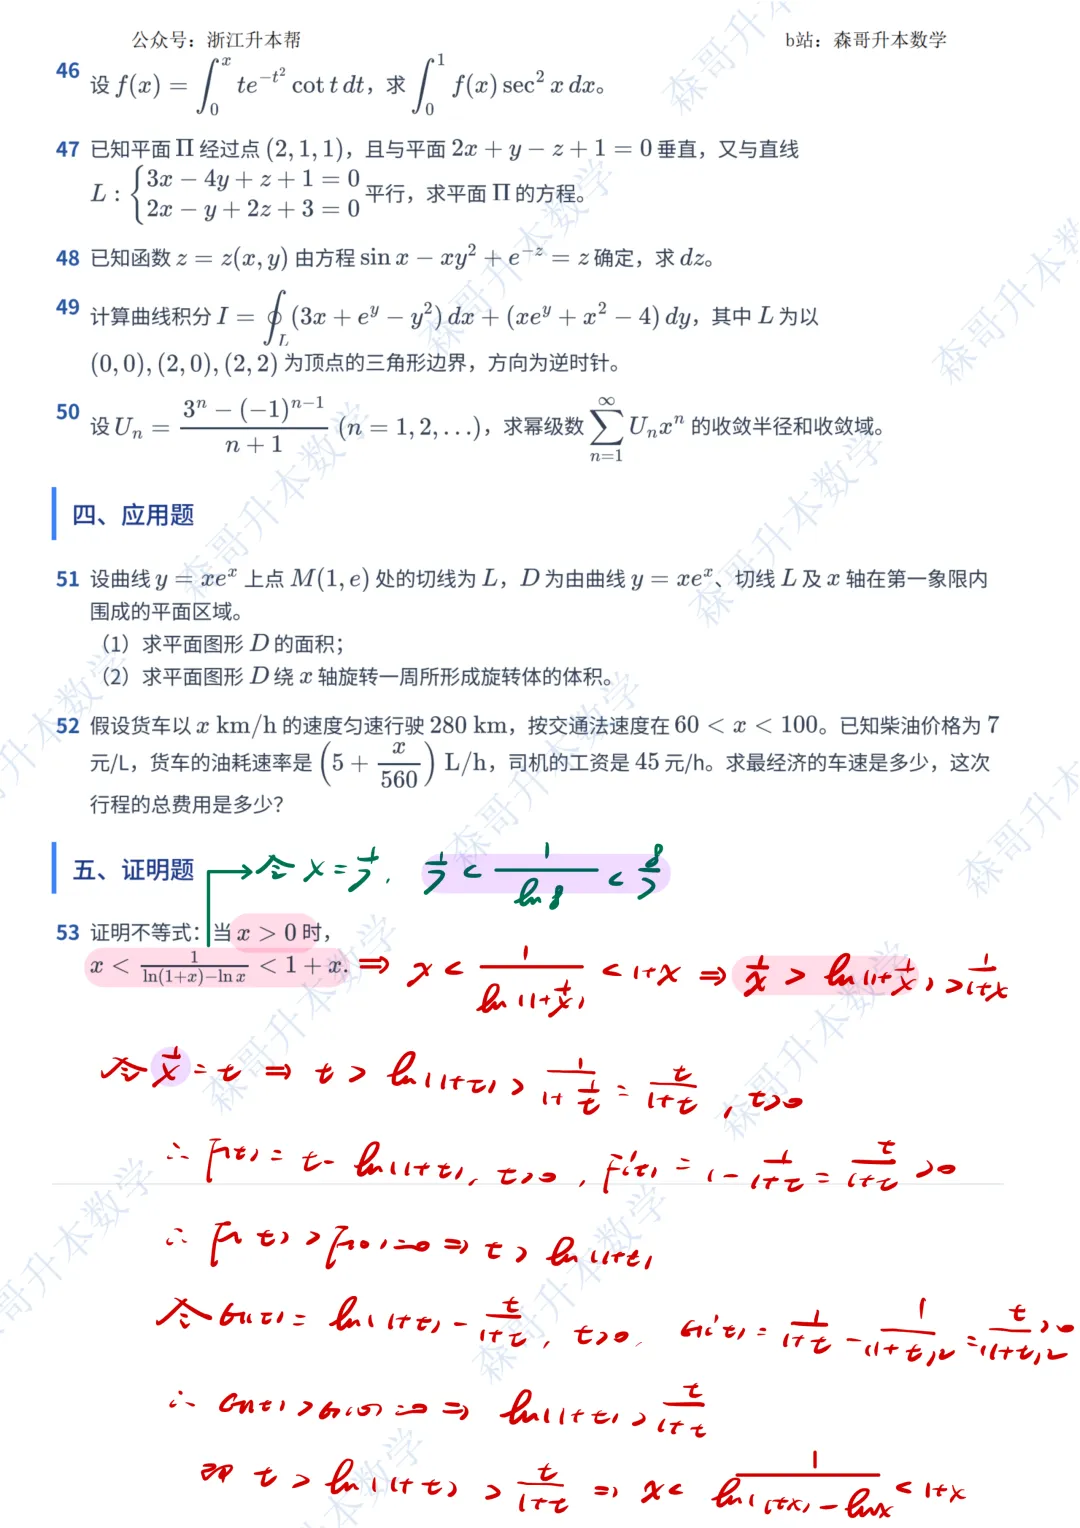 公众号：浙江升本帮 b站：森哥升本数学
46 设 f(x) = ∫₀ˣ te^{-t²} cot t dt，求 ∫₀¹ f(x) sec² x dx。
47 已知平面 Π 经过点 (2, 1, 1)，且与平面 2x + y − z + 1 = 0 垂直，又与直线
L : { 3x − 4y + z + 1 = 0
2x − y + 2z + 3 = 0 平行，求平面 Π 的方程。
48 已知函数 z = z(x, y) 由方程 sin x − xy² + e^{-z} = z 确定，求 dz。
49 计算曲线积分 I = ∮_L (3x + e^y − y²) dx + (xe^y + x² − 4) dy，其中 L 为以
(0, 0), (2, 0), (2, 2) 为顶点的三角形边界，方向为逆时针。
50 设 U_n = \frac{3^n − (−1)^{n−1}}{n + 1} (n = 1, 2, …)，求幂级数 \sum_{n=1}^{∞} U_n x^n 的收敛半径和收敛域。
四、应用题
51 设曲线 y = xe^x 上点 M(1, e) 处的切线为 L，D 为由曲线 y = xe^x、切线 L 及 x 轴在第一象限内
围成的平面区域。
（1）求平面图形 D 的面积；
（2）求平面图形 D 绕 x 轴旋转一周所形成旋转体的体积。
52 假设货车以 x km/h 的速度匀速行驶 280 km，按交通法速度在 60 < x < 100。已知柴油价格为 7
元/L，货车的油耗速率是 (5 + \frac{x}{560}) L/h，司机的工资是 45 元/h。求最经济的车速是多少，这次
行程的总费用是多少？
五、证明题 → 令 x = \frac{1}{7}. \frac{1}{7} < \frac{1}{ln 8} < \frac{8}{7}
53 证明不等式：当 x > 0 时，
x < \frac{1}{ln(1+x)−ln x} < 1 + x. ⇒ x < \frac{1}{ln(1+\frac{1}{x})} < 1+x ⇒ \frac{1}{x} > ln(1+\frac{1}{x}) > \frac{1}{1+x}
令 \frac{1}{x} = t ⇒ t > ln(1+t) > \frac{1}{1+\frac{1}{t}} = \frac{t}{1+t}, t>0
∴ F(t) = t − ln(1+t), t>0, F'(t) = 1 − \frac{1}{1+t} = \frac{t}{1+t} >0
∴ F(t) > F(0) = 0 ⇒ t > ln(1+t)
令 G(t) = ln(1+t) − \frac{t}{1+t}, t>0, G'(t) = \frac{1}{1+t} − \frac{1}{(1+t)²} = \frac{t}{(1+t)²} >0
∴ G(t) > G(0) = 0 ⇒ ln(1+t) > \frac{t}{1+t}
即 t > ln(1+t) > \frac{t}{1+t} ⇒ x < \frac{1}{ln(1+x) − ln x} < 1+x
森哥升本数学